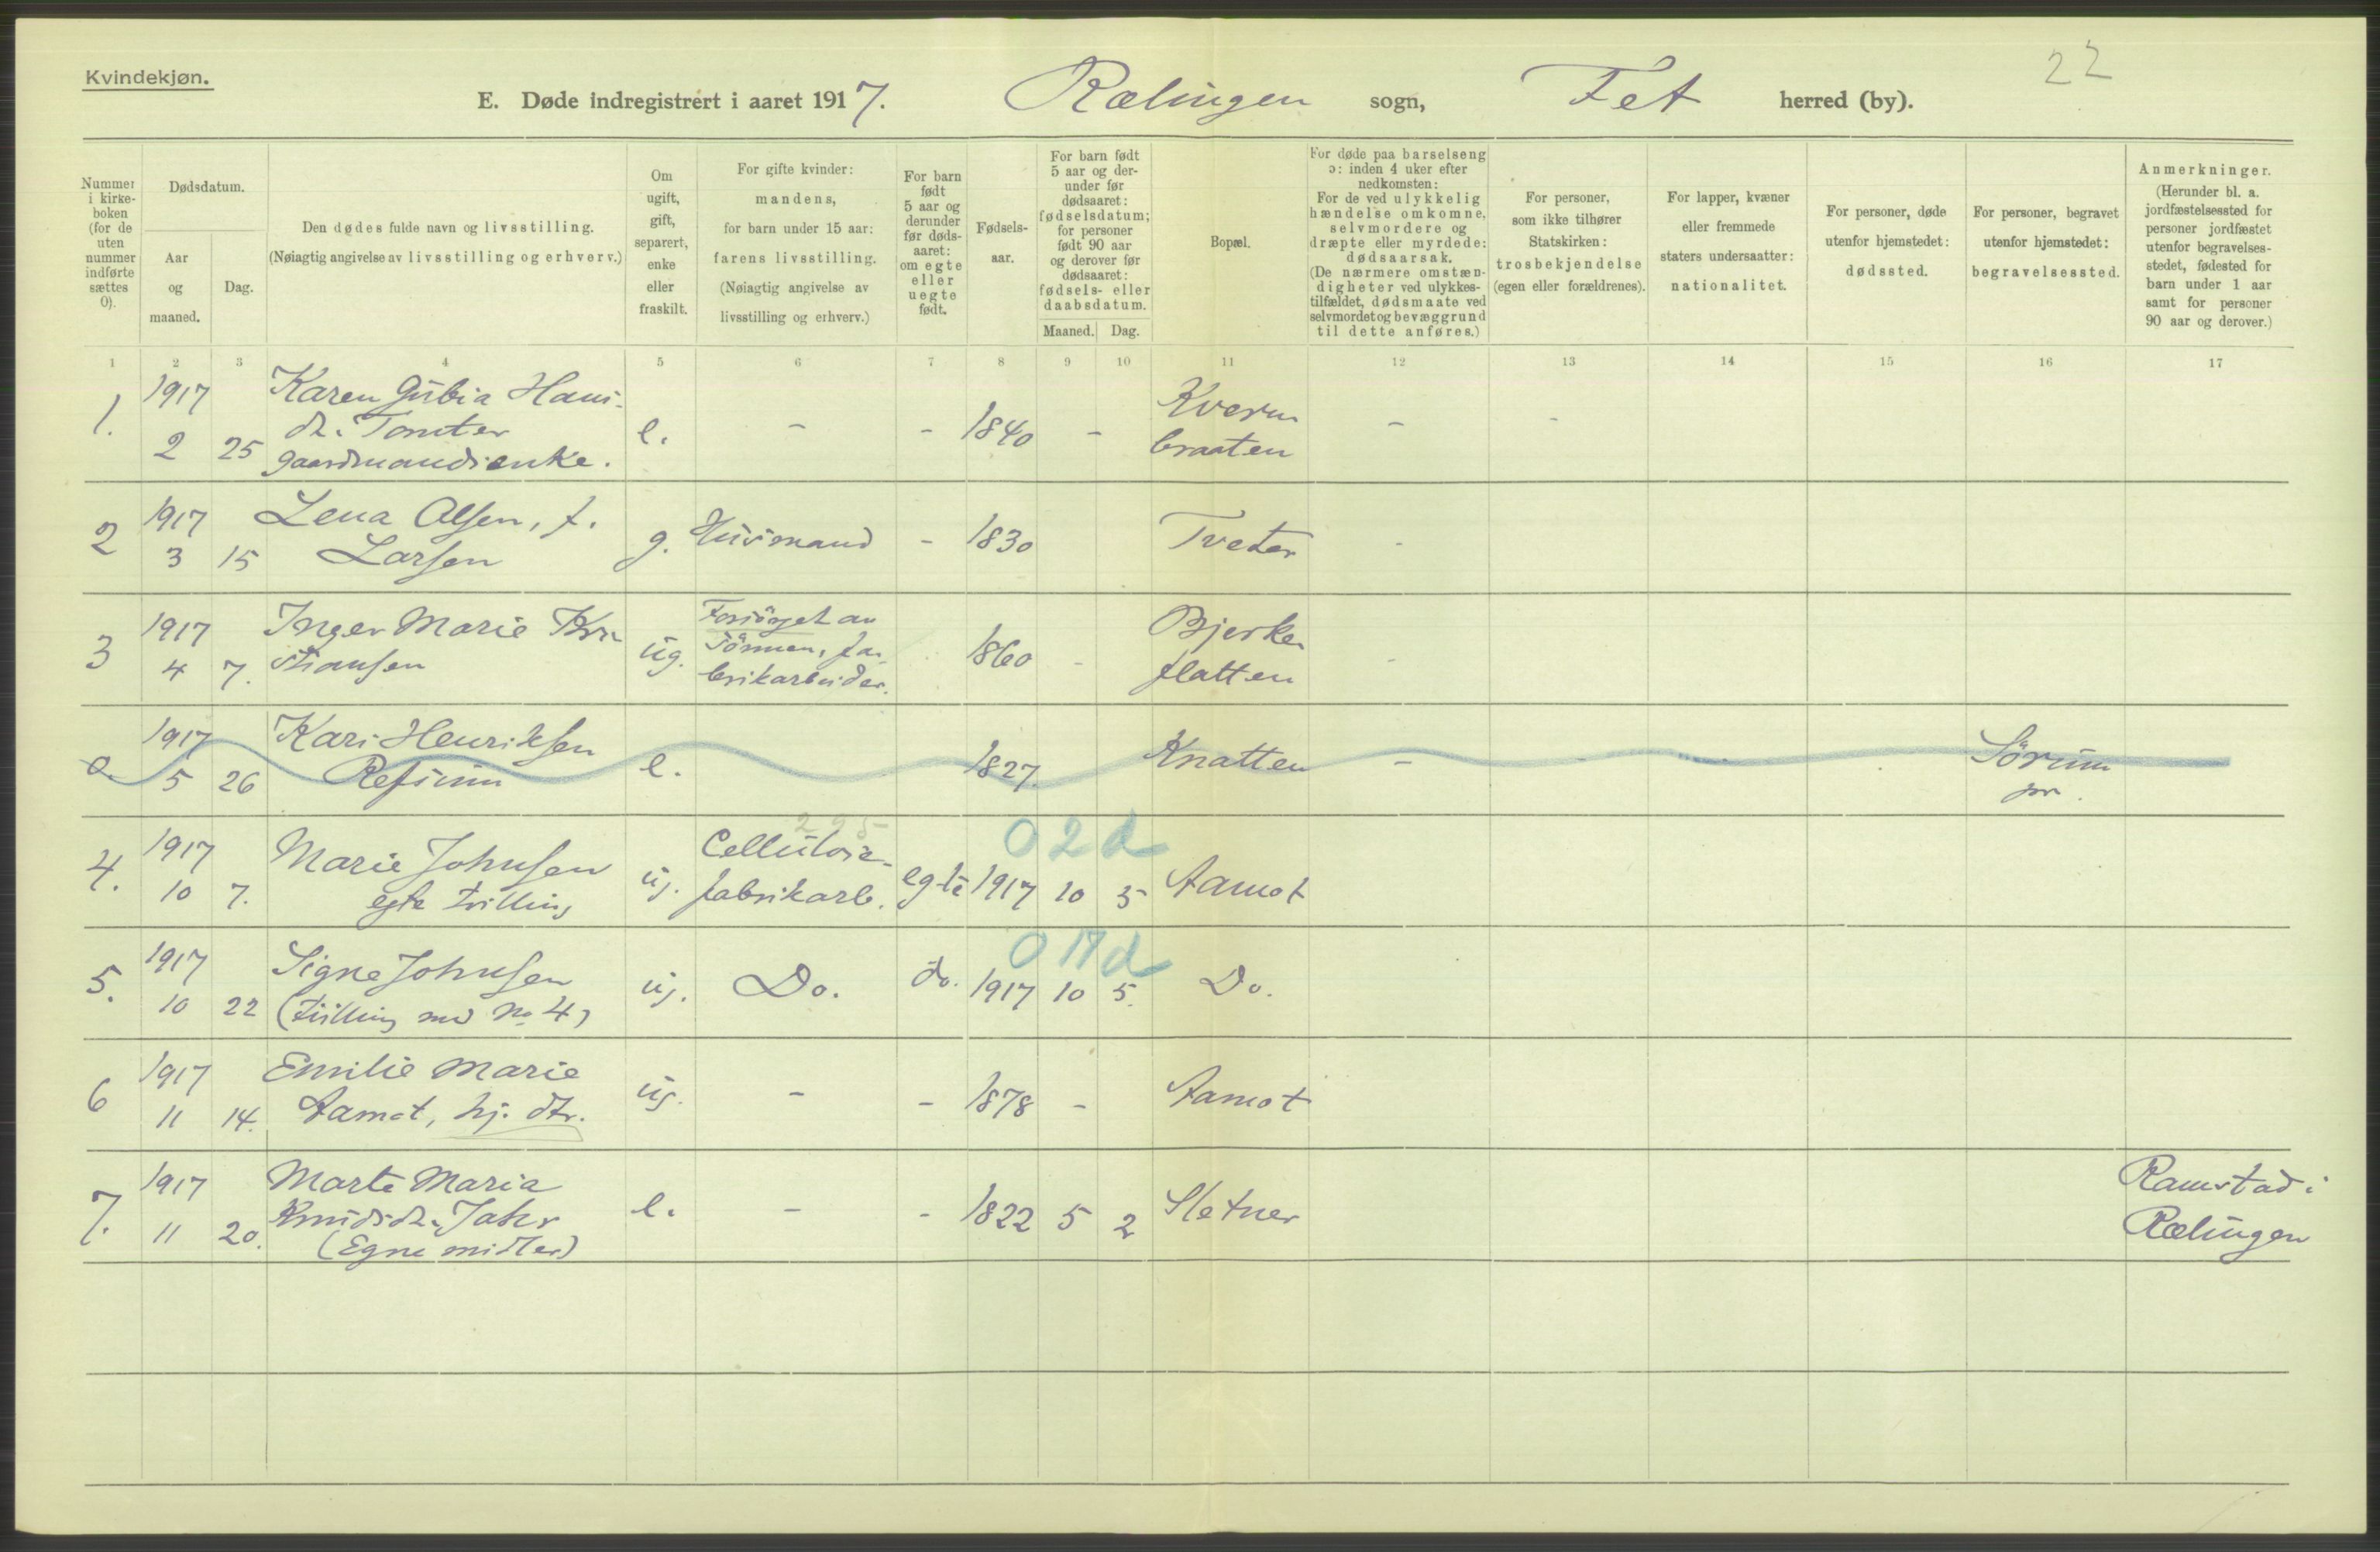 Kvindekjøn.
22
E. Døde indregistrert i aaret 1917. Rælingen sogn, Fet herred (by).
Nummer i kirke-boken (for de uten nummer indførte sættes 0).
Dødsdatum.
Aar og maaned.
Dag.
Den dødes fulde navn og livsstilling.
(Nøiagtig angivelse av livsstilling og erhverv.)
Om ugift, gift, separert, enke eller fraskilt.
For gifte kvinder: mandens, for barn under 15 aar: farens livsstilling.
(Nøiagtig angivelse av livsstilling og erhverv.)
For barn født 5 aar og derunder før døds-aaret: om egte eller uegte født.
Fødsels-aar.
For barn født 5 aar og der-under før dødsaaret: fødselsdatum; for personer født 90 aar og derover før dødsaaret: fødsels- eller daabsdatum.
Maaned. Dag.
Bopæl.
For døde paa barselseng ɔ: inden 4 uker efter nedkomsten:
For de ved ulykkelig hændelse omkomne, selvmordere og dræpte eller myrdede: dødsaarsak.
(De nærmere omstæn-digheter ved ulykkes-tilfældet, dødsmaate ved selvmordet og bevæggrund til dette anføres.)
For personer, som ikke tilhører Statskirken: trosbekjendelse (egen eller forældrenes).
For lapper, kvæner eller fremmede staters undersaatter: nationalitet.
For personer, døde utenfor hjemstedet: dødssted.
For personer, begravet utenfor hjemstedet: begravelsessted.
Anmerkninger.
(Herunder bl. a. jordfæstelsessted for personer jordfæstet utenfor begravelses-stedet, fødested for barn under 1 aar samt for personer 90 aar og derover.)
1 2 3 4 5 6 7 8 9 10 11 12 13 14 15 16 17
1917 Karen Gubia Hans- Kvern
1. dt. Tomter e. - - 1840 - - -
2 25 gaardmandsenke. braaten
1917 Lena Olsen, f.
2 g. Husmand - 1830 Tveter -
3 15 Larsen
1917 Inger Marie Kri Forsörget av Bjerke
3 ug. sönnen, fa- 1860 - -
4 7. stiansen brikarbeider. flatten
1917 Kari Henriksen Sörum
0 e. 1827. Knatten -
5 26 Refsum pr.
295 0 2 d
1917 Marie Johnsen Cellulose-
4. ug. fabrikarb. egte 1917 10 5 Aamot
10 7. egte tvilling
0 17 d
1917 Signe Johnsen
5. ug. Do. do. 1917 10 5. Do.
10 22 (Tvilling med No 4)
1917 Emilie Marie
6 ug. - - 1878 - Aamot
11 14. Aamot, hj. dtr.
1917 Marte Maria Ramstad i
7. Knudsdt. Jahr e. - - 1822 5 2 Sletner
11 20. (Egne midler) Rælingen